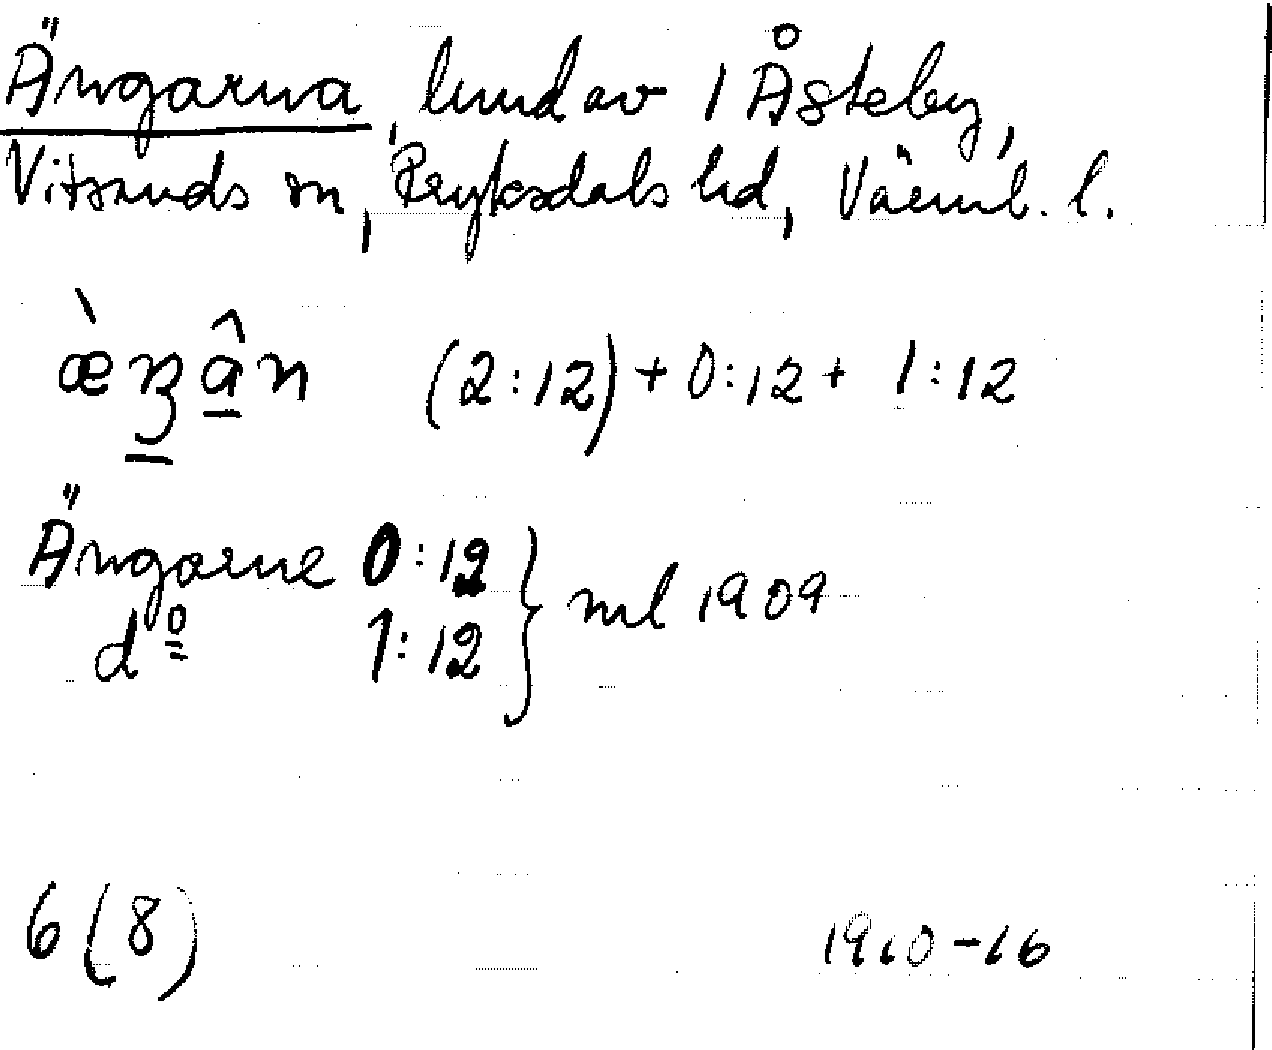 Ängarna, lund av 1 Åsteby,
Vitsands sn, Fryksdals hd, Värml. l.
(2:12) + 0:12 + 1:12
Ängarne 0:12
do 1:12
ml 1909
6 (8)
1910-16